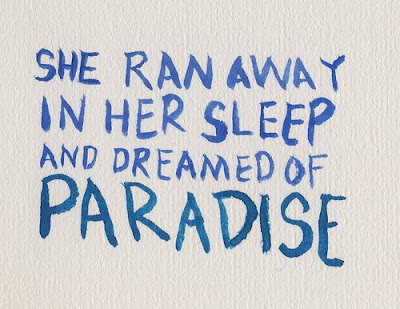 SHE RAN AWAY
IN HER SLEEP
AND DREAMED OF
PARADISE